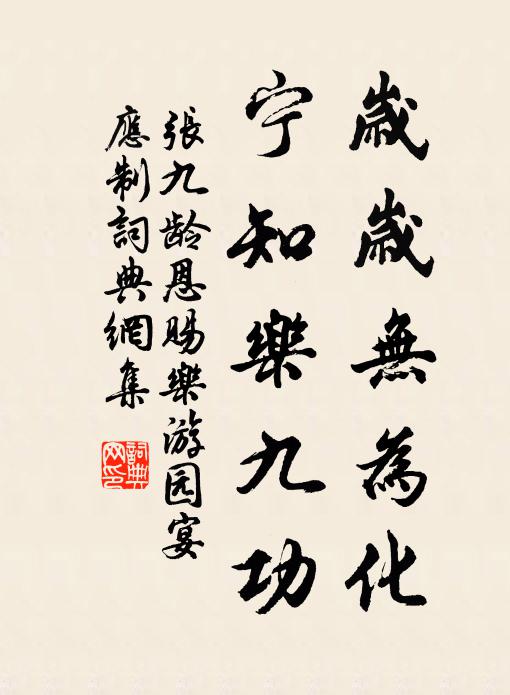 歲歲無為化
宁知樂九功
張九龄恩賜樂游园宴
應制詞典網集
詞典網印